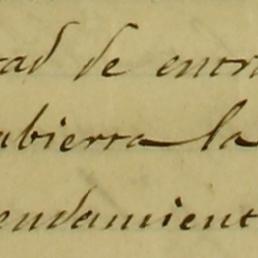 tad de entr
abierta la
endamient